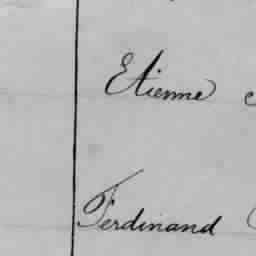 Etienne
Ferdinand